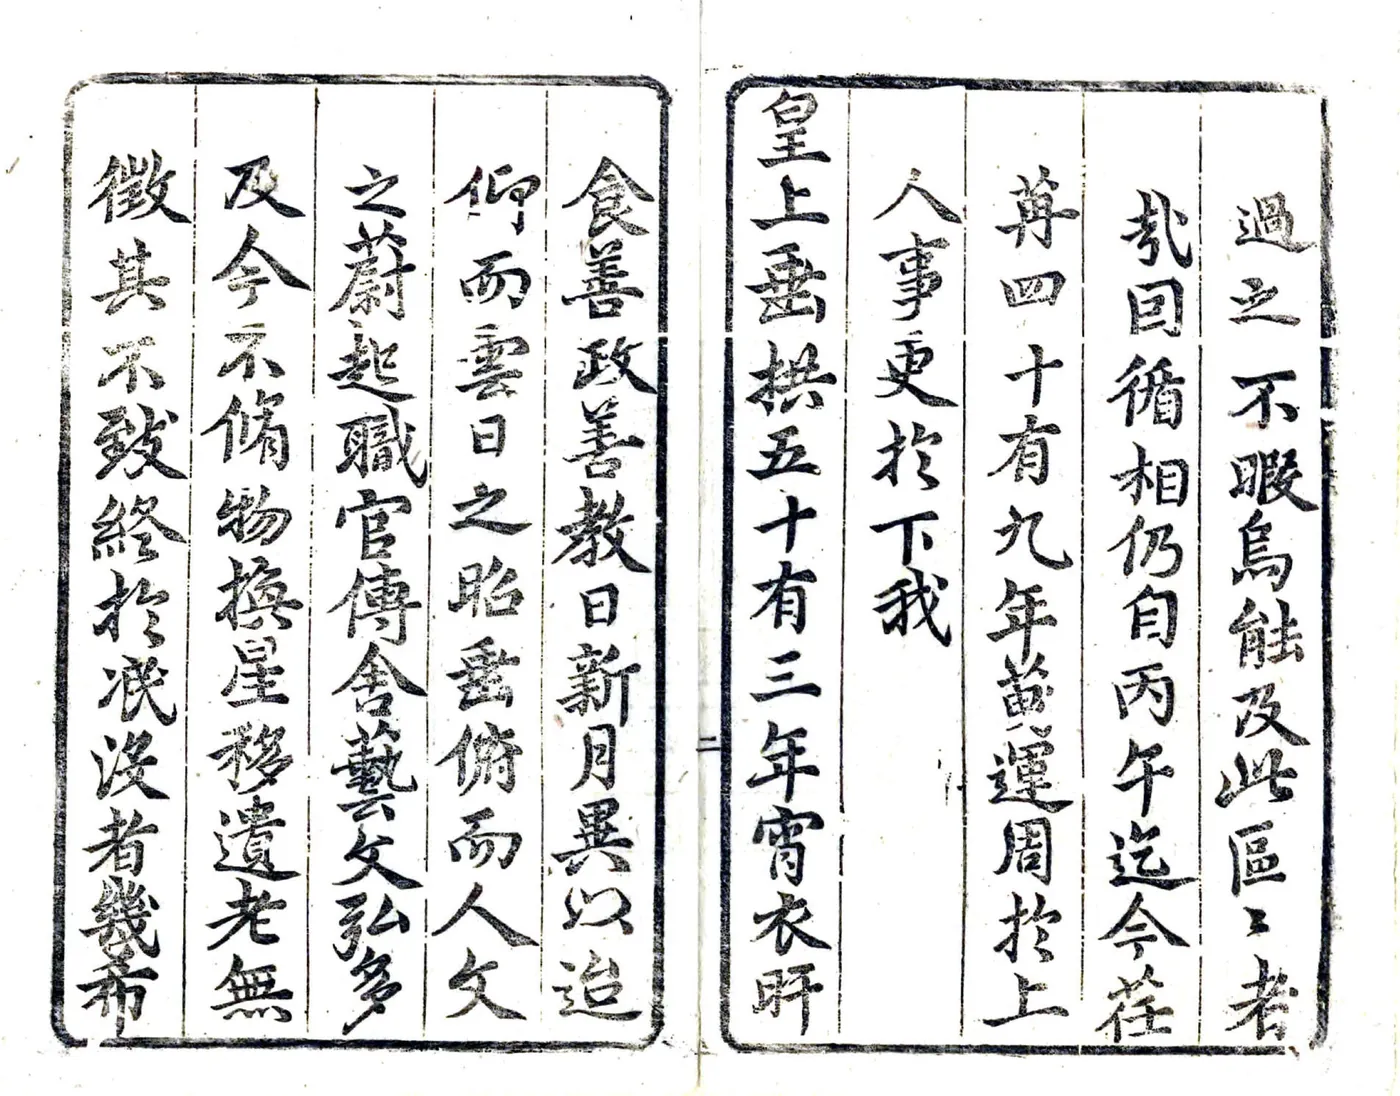 過之不暇烏能及此區〻者
哉因循相仍自丙午迄今荏
苒四十有九年蓂運周於上
人事更於下我
皇上垂拱五十有三年宵衣旰
二
食善政善教日新月異以迨
仰而雲日之昭垂俯而人文
之蔚起職官傳舍藝文弘多
及今不脩物換星移遺老無
徵其不致終於泯沒者幾希